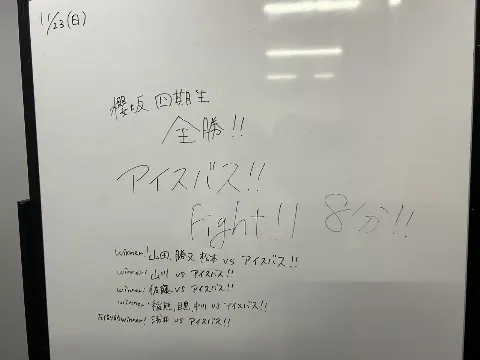 11/23(日)
櫻坂 四期生
全勝!!
アイスバス!!
Fight!! 8分!!
winner! 山田, 勝又, 松本 vs アイスバス!!
winner! 山川 vs アイスバス!!
winner! 佐藤 vs アイスバス!!
winner! 稲熊, 目黒, 中川 vs アイスバス!!
winner! 浅井 vs アイスバス!!